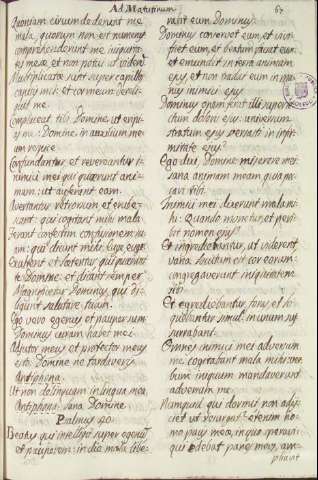 Ad Matutinum.
67
Quoniam circumdederunt me
mala, quorum non est numerus
comprehenderunt me iniquita-
tes meæ, et non potui ut viderem
Multiplicatæ sunt super capillos
capitis mei: et cor meum dereli-
quit me.
Complaceat tibi Domine ut eripi-
as me: Domine in auxilium me-
um respice
Confundantur et revereantur si-
mul qui quærunt ani-
mam: ut auferant eam.
Avertantur retrorsum et reve-
reant: qui cogitant mihi mala.
Ferant confestim confusionem su-
am: qui dicunt mihi: Euge euge
Exultent et lætentur qui quærunt
te Domine, et dicant semper
Magnificetur Dominus, qui di-
ligunt salutare tuum.
Ego vero egenus et pauper sum
Dominus curam habet mei.
Adjutor meus et protector meus
esto: Domine ne tardaveris
Antiphona.
Ut non delinquam in lingua mea
Antiphona. Sana Domine
Psalmus 40.
Beatus qui intelligit super egenum
et pauperem: in die mala libe-
ravit eum Dominus
Dominus conservet eum, et vivi-
ficet eum, et beatum faciat eum
et emundet in terra animam
ejus, et non tradat eum in ma-
nus inimici ejus
Dominus opem ferat illi super le-
ctum doloris ejus: universum
stratum ejus versasti in infir-
mitate ejus
Ego dixi, Domine miserere mei:
sana animam meam quia pec-
cavi tibi
Inimici mei dixerunt mala mi-
hi: Quando morietur, et peri-
bit nomen ejus?
Et si ingrediebantur, ut viderent
vana locutum est cor eorum:
congregaverunt iniquitatem
sibi
Et egrediebantur foras, et lo-
quebantur simul: in unum su-
surrabant.
Omnes inimici mei adversum
me cogitabant mala mihi: ver-
bum iniquum mandaverunt
adversum me.
Numquid qui dormit non adji-
ciet ut resurgat? etenim ho-
mo pacis meæ, in quo speravi
qui edebat panes meos, am-
pliavit